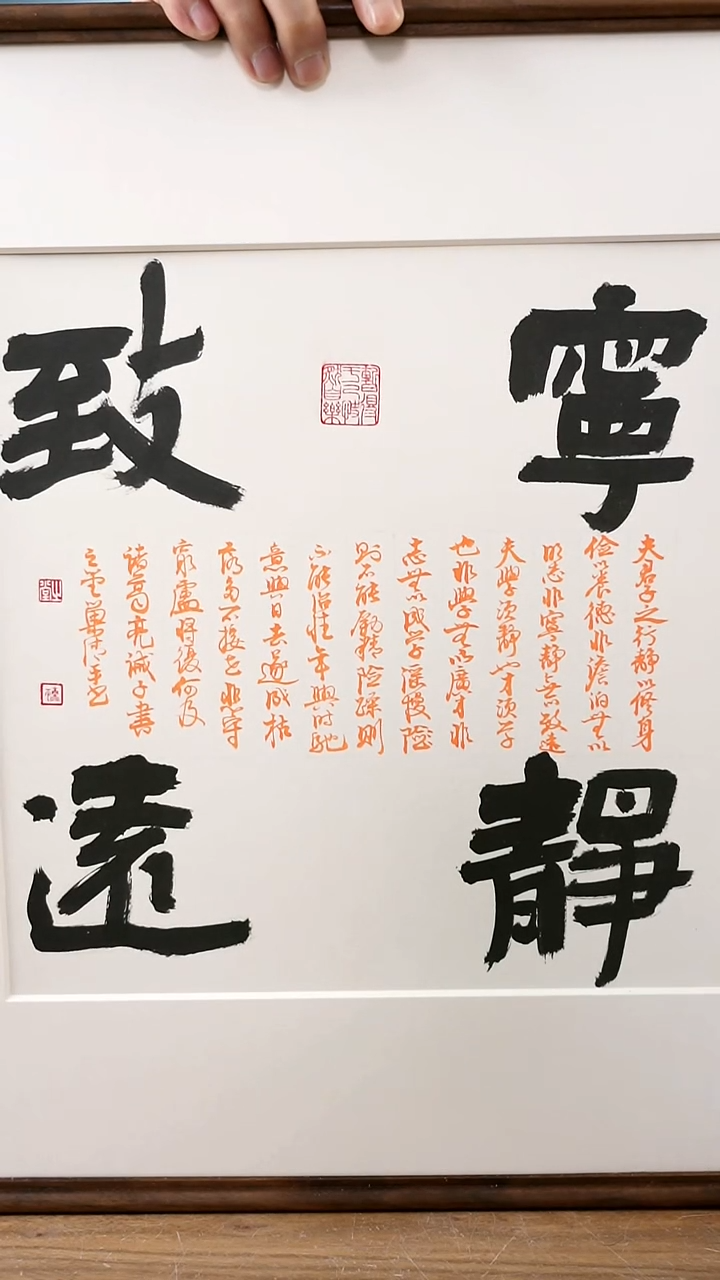 寧靜
致遠
夫君子之行靜以修身
俭以養德非澹泊無以
明志非寧靜無以致遠
夫學須靜也才須學
也非學無以廣才非
志無以成學淫慢险
則不能勵精险躁則
不能治性年與時馳
意與日去遂成枯
落多不接世悲守
窮廬將復何及
諸葛亮诫子書